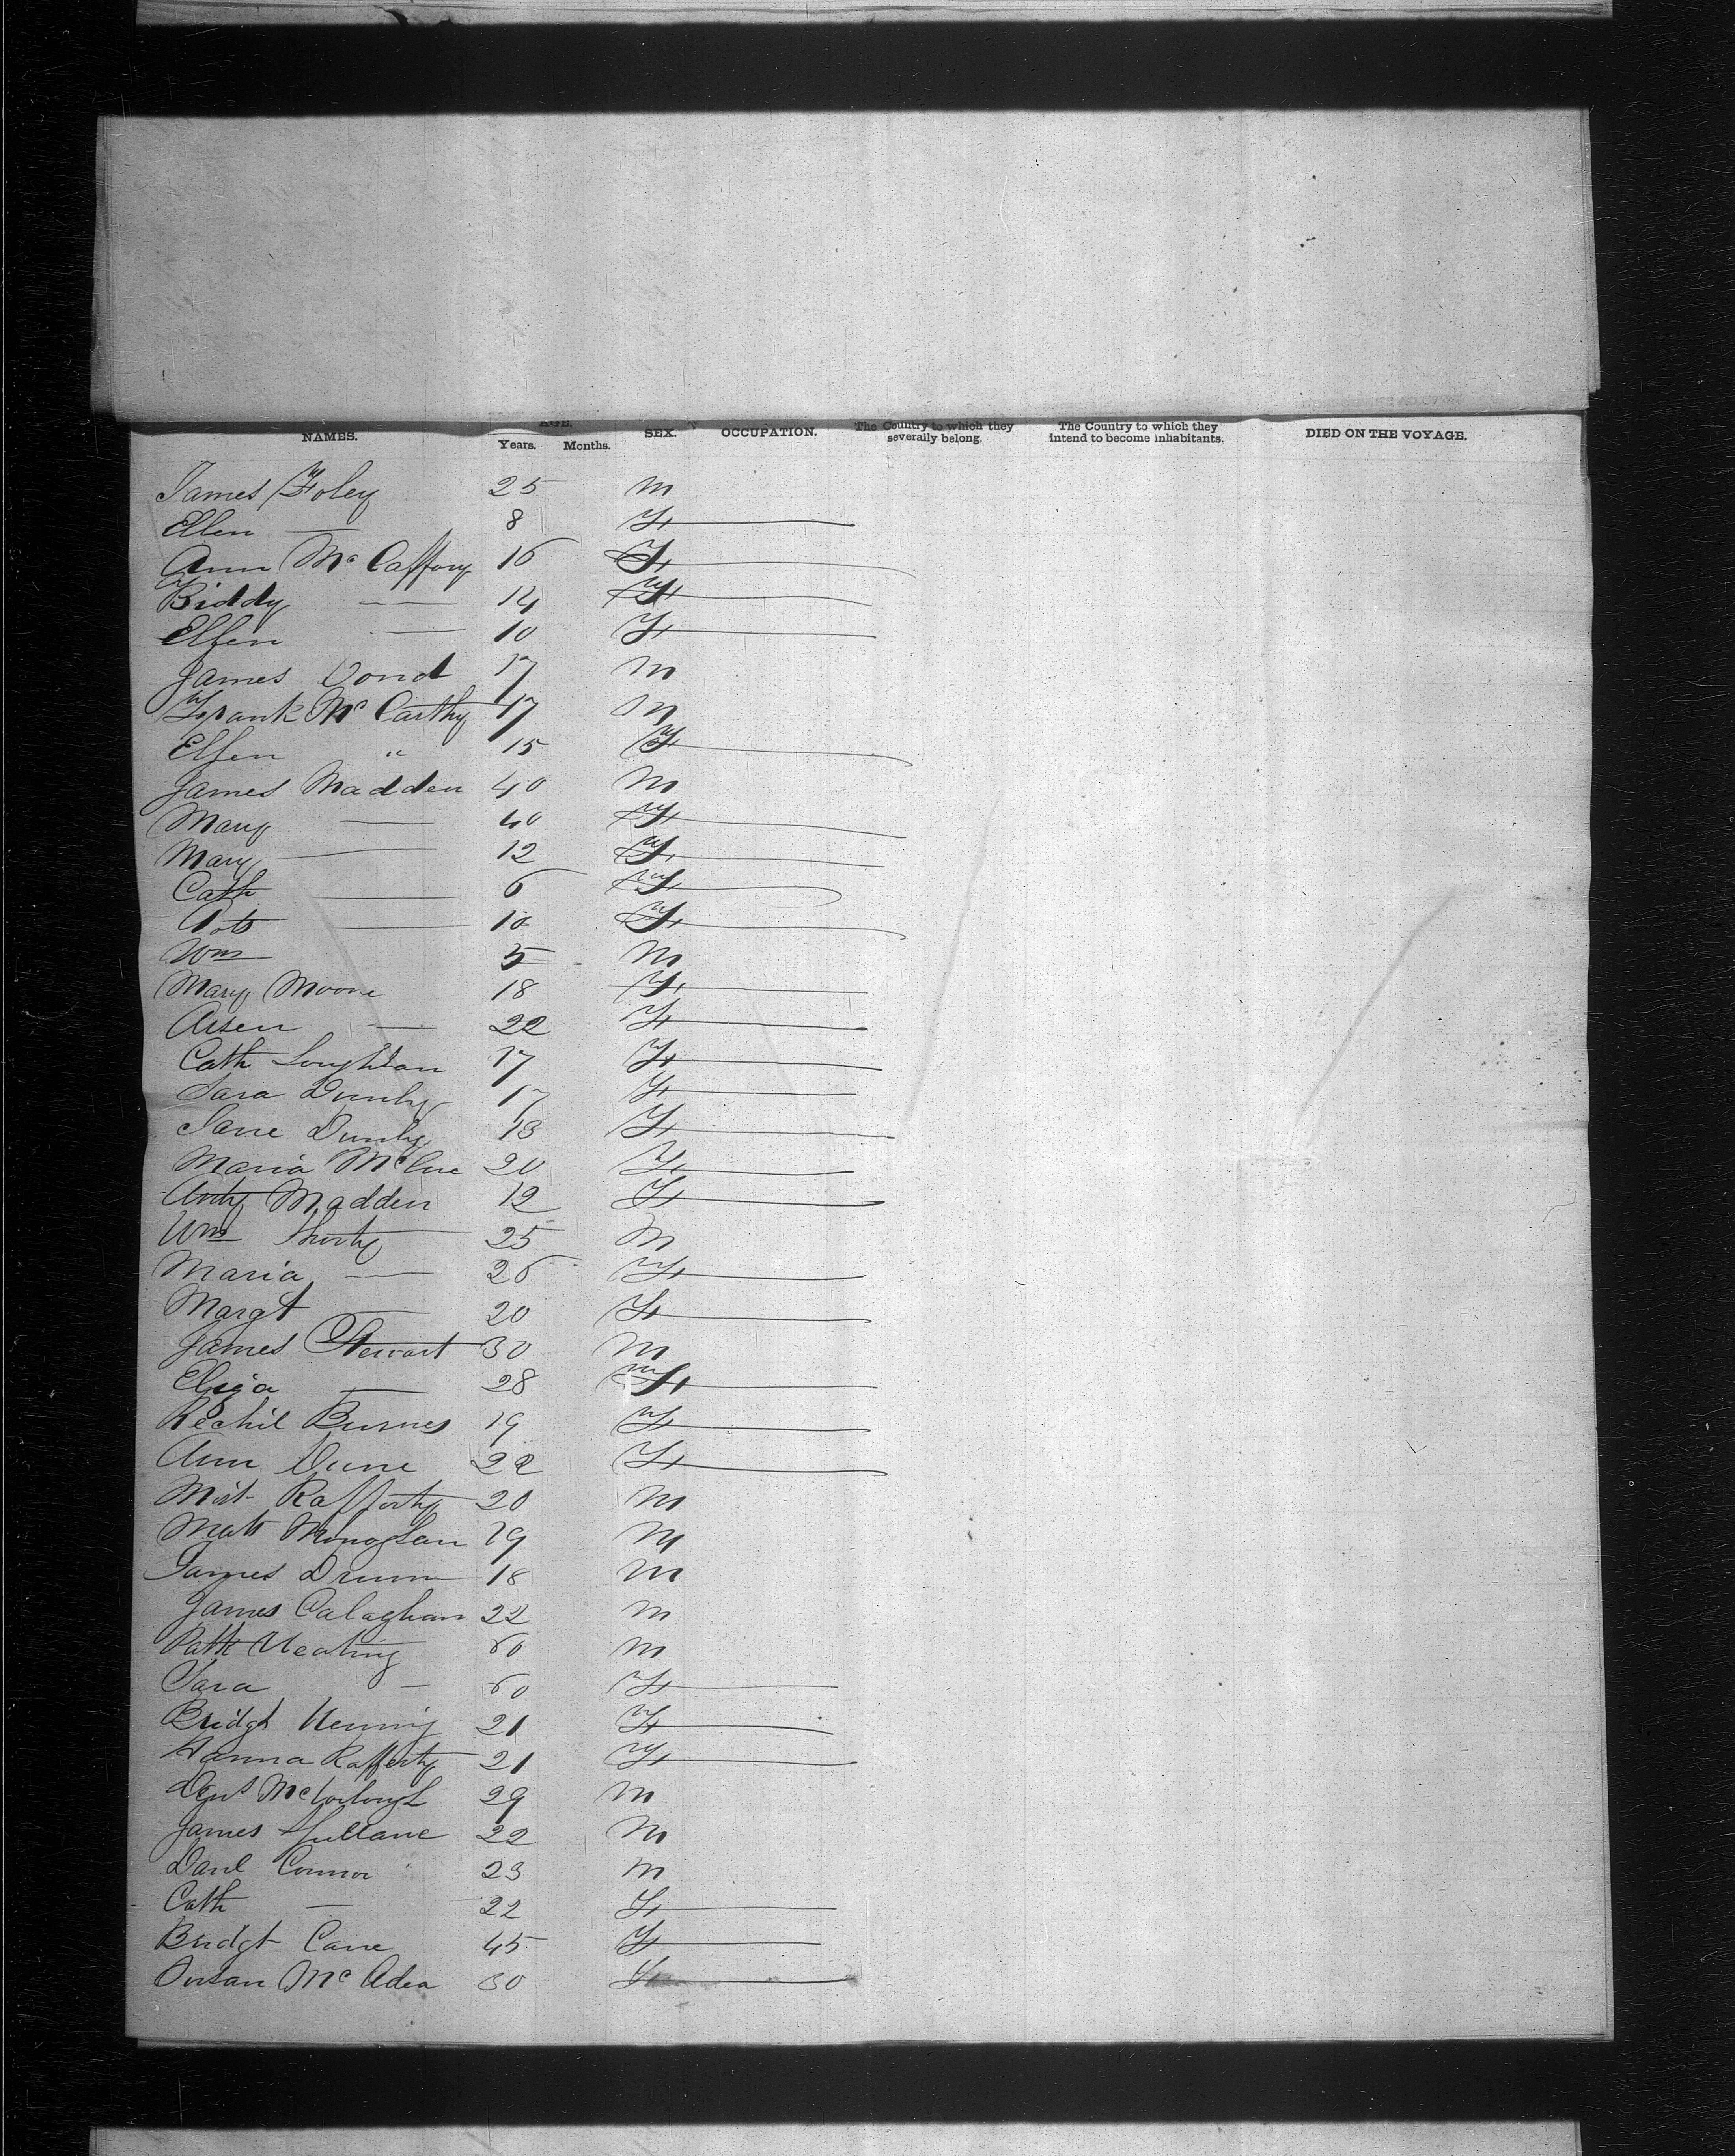 NAMES. AGE. Years. Months. SEX. OCCUPATION. The Country to which they severally belong. The Country to which they intend to become inhabitants. DIED ON THE VOYAGE.
James Foley 25 M
Ellen — 8 F
Ann McCaffery 16 F
Biddy — 14 F
Ellen — 10 F
James Dond 17 M
Frank McCarthy 17 M
Ellen " 15 F
James Madden 40 M
Mary — 40 F
Mary — 12 F
Cath — 6 F
— 10 F
Wm 5 M
Mary Moore 18 F
— 22 F
Cath Loughlan 17 F
Sara 17 F
Jane 18 F
Maria McCue 20 F
Madden 12 F
Wm 25 M
Maria — 26 F
Margt — 20 F
James Stewart 30 M
Eliza — 28 F
Rechil Burnes 19 F
Ann Dune 22 F
Rafferty 20 M
Monoghan 19 M
James Drum 18 M
James Calaghan 22 M
Patk Keating 60 M
Sara — 60 F
Bridgt 21 F
Hanna Rafferty 21 F
29 M
James 22 M
Danl Connor 23 M
Cath — 22 F
Bridgt Cane 45 F
McAdea 30 F